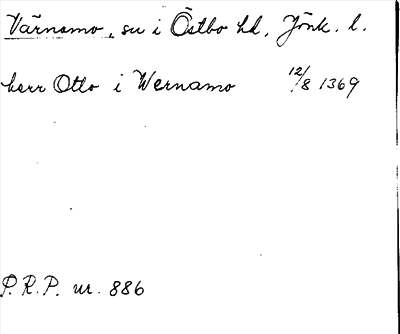 Värnamo, sn i Östbo hd, Jönk. l.
herr Otto i Wernamo 12/8 1369
P.R.P. nr. 886